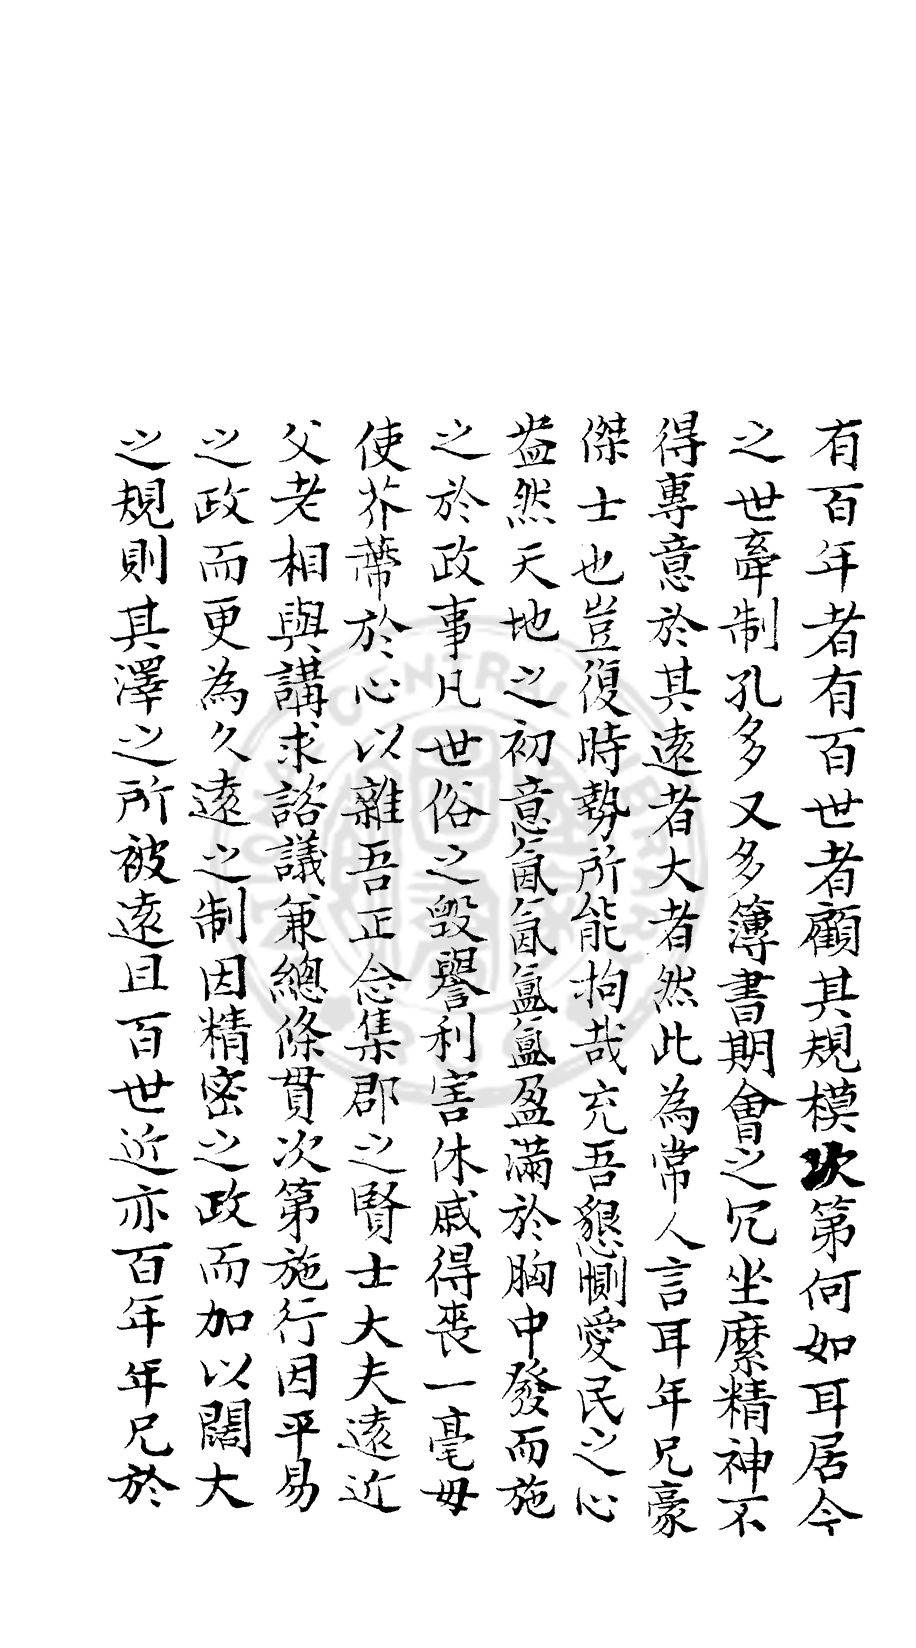 有百年者有百世者顧其規模次第何如耳居今
之世牽制孔多又多簿書期會之冗坐縻精神不
得專意於其遠者大者然此為常人言耳年兄豪
傑士也豈復時勢所能拘哉充吾懇惻愛民之心
盎然天地之初意氤氤氳氳盈滿於胸中發而施
之於政事凡世俗之毀譽利害休戚得喪一毫毋
使芥蔕於心以雜吾正念集郡之賢士大夫遠近
父老相與講求諮議兼總條貫次第施行因平易
之政而更為久遠之制因精密之政而加以闊大
之規則其澤之所被遠且百世近亦百年年兄於